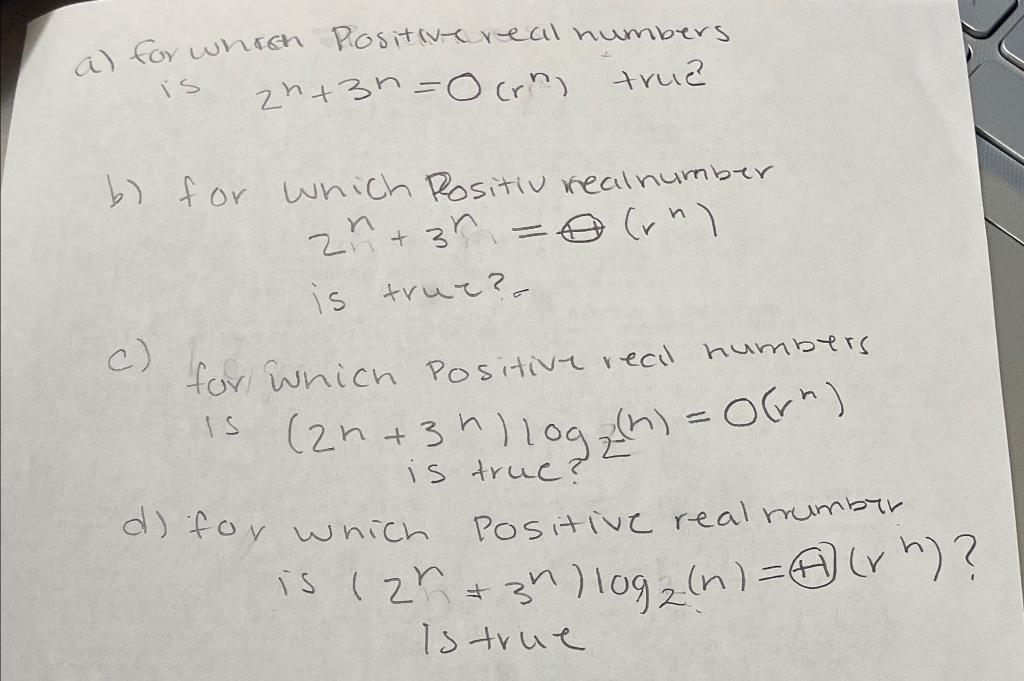 a) for which Positive real numbers
is 2ⁿ+3ⁿ = O(rⁿ) true?
b) for which Positiv real number
2ⁿ + 3ⁿ = Θ(rⁿ)
is true?
c) for which Positive real numbers
is (2n + 3ⁿ) log₂(n) = O(rⁿ)
is true?
d) for which Positive real number
is (2ⁿ + 3ⁿ) log₂(n) = Θ(rⁿ)?
Is true